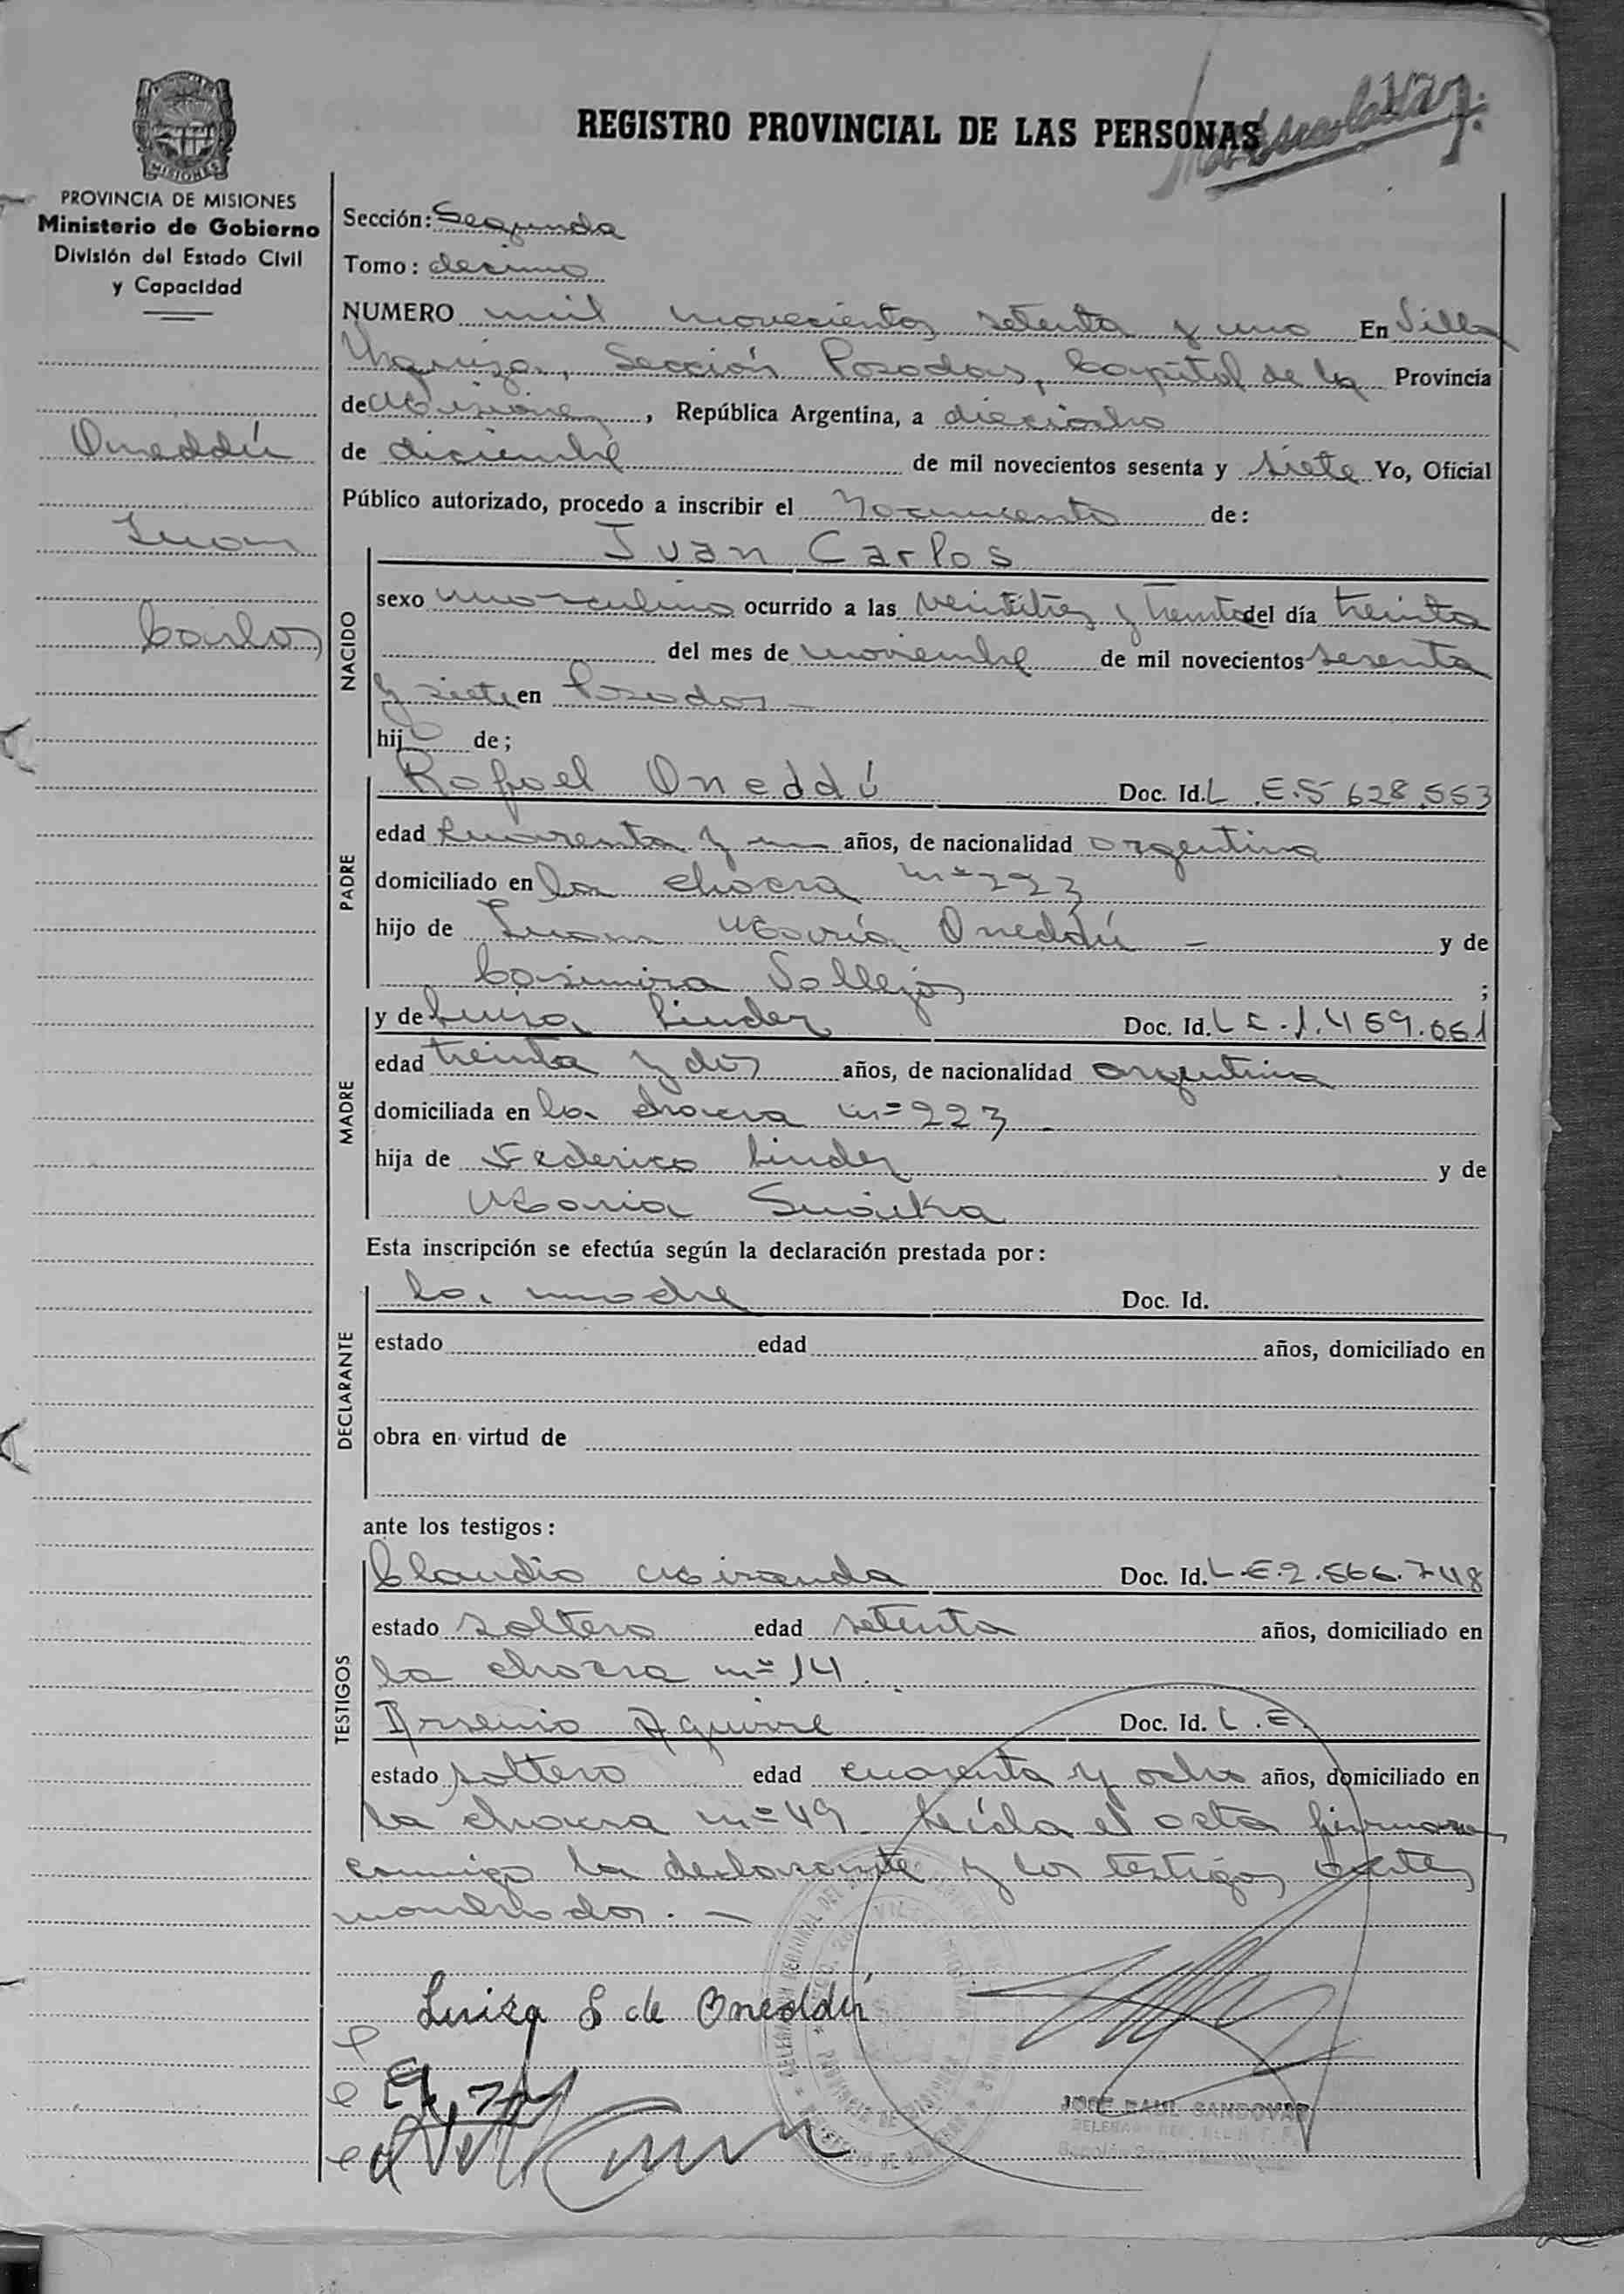 REGISTRO PROVINCIAL DE LAS PERSONAS
MISIONES
PROVINCIA DE MISIONES
Ministerio de Gobierno
División del Estado Civil
y Capacidad
Oneddú
Juan
Carlos
Sección: Segunda
Tomo: decimo
NUMERO mil novecientos setenta y uno En Villa
Urquiza, Sección Posadas, Capital de la Provincia
de Misiones, República Argentina, a dieciocho
de diciembre de mil novecientos sesenta y siete Yo, Oficial
Público autorizado, procedo a inscribir el Nacimiento de:
Juan Carlos
NACIDO
sexo masculino ocurrido a las veintitres y treinta del día treinta
del mes de noviembre de mil novecientos sesenta
y siete en Posadas
hijo de;
PADRE
Rafael Oneddú Doc. Id. L.E. 5628.553
edad cuarenta y un años, de nacionalidad argentina
domiciliado en la chacra nº 223
hijo de Juan María Oneddú - y de
Casimira Vallejos ;
MADRE
y de Luisa Linder Doc. Id. L.C.-1.459.051
edad treinta y dos años, de nacionalidad argentina
domiciliada en la chacra nº 223
hija de Federico Linder y de
Maria
Esta inscripción se efectúa según la declaración prestada por:
DECLARANTE
la madre Doc. Id.
estado edad años, domiciliado en
obra en virtud de
ante los testigos:
TESTIGOS
Claudio Miranda Doc. Id. L.E. 2.566.748
estado soltero edad setenta años, domiciliado en
la chacra nº 14.
Arsenio Aguirre Doc. Id. L.E.
estado soltero edad cuarenta y ocho años, domiciliado en
la chacra nº 49. Leída el acta firman
conmigo la declarante y los testigos antes
nombrados.-
Luisa L de Oneddú
JOSE RAUL SANDOVAL